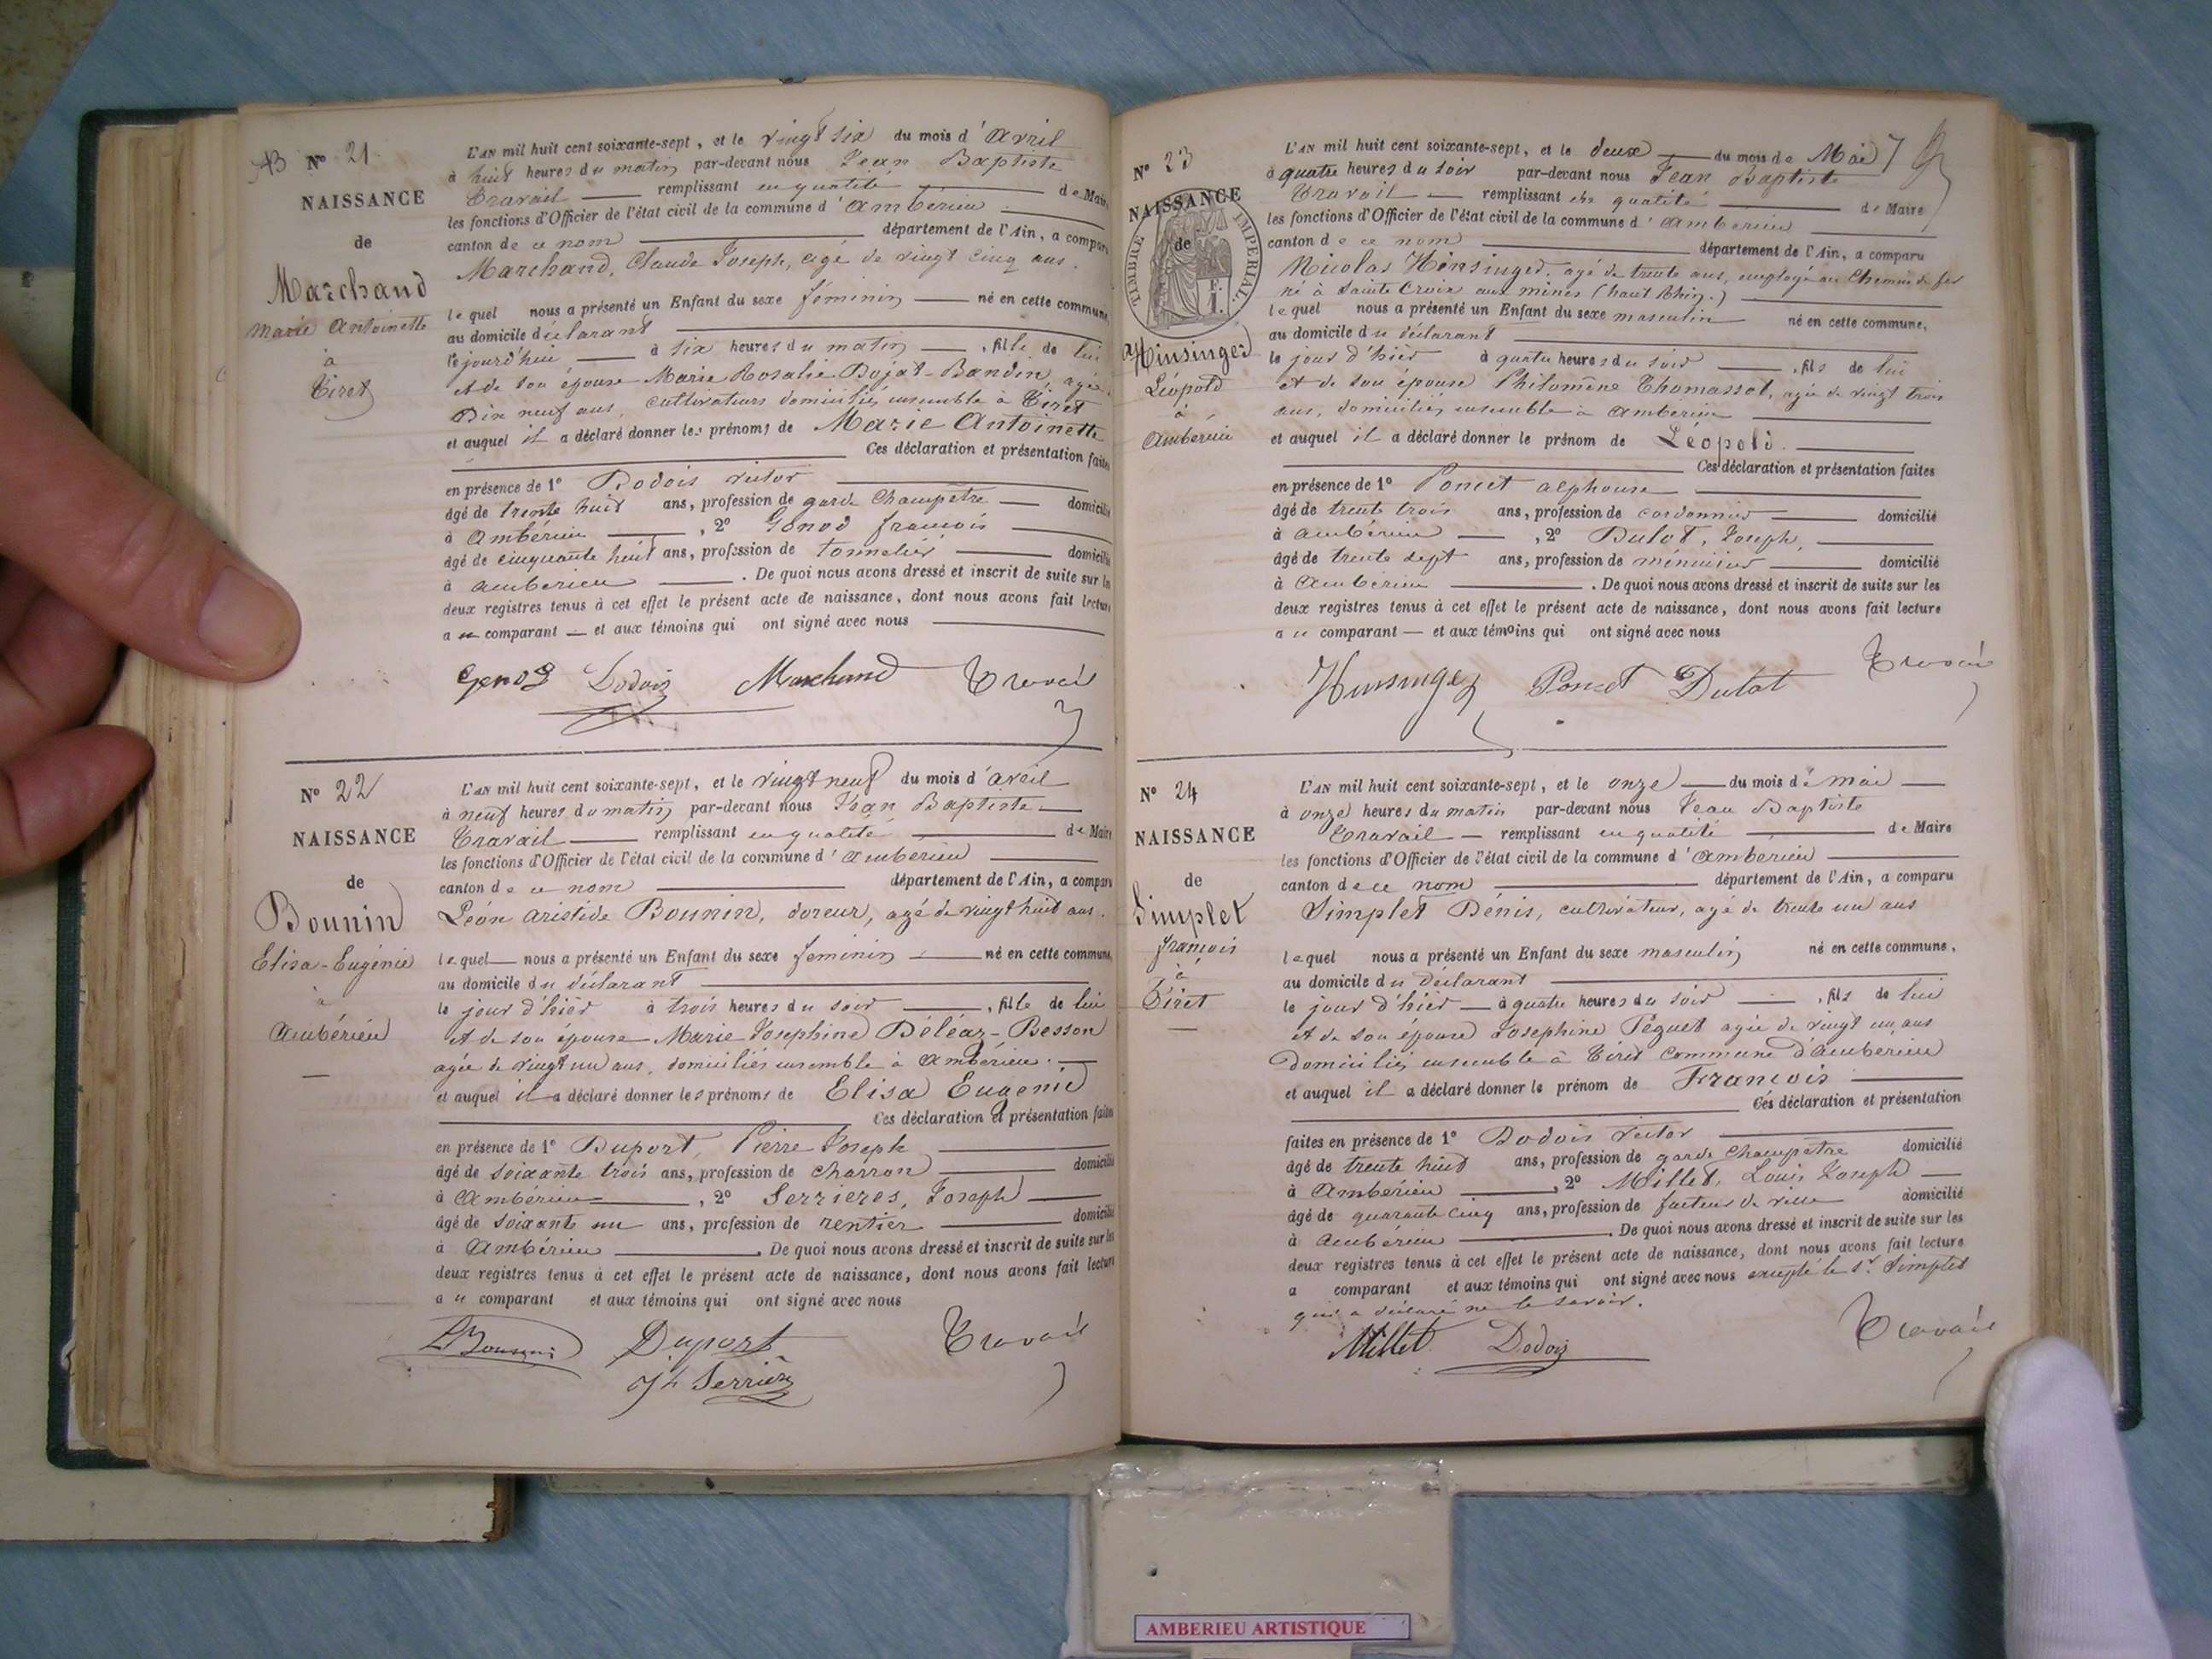 AB N° 21
NAISSANCE
de
Marchand
Marie Antoinette
à
Tiret
L'AN mil huit cent soixante-sept, et le vingt six du mois d'Avril
à huit heures du matin par-devant nous Jean Baptiste
Travail remplissant en qualité de Maire
les fonctions d'Officier de l'état civil de la commune d'Ambérieu
canton de ce nom département de l'Ain, a comparu
Marchand, Claude Joseph, agé de vingt cinq ans.
lequel nous a présenté un Enfant du sexe féminin né en cette commune,
au domicile déclarant
le jourd'hui à six heures du matin, fille de lui
et de son épouse Marie Rosalie Bojat-Bandin, agée
Dix neuf ans, cultivateurs domiciliés ensemble à Tiret
et auquel il a déclaré donner les prénoms de Marie Antoinette
Ces déclaration et présentation faites
en présence de 1° Dodois victor
âgé de trente huit ans, profession de garde Champetre domicilié
à Ambérieu, 2° Genod françois
âgé de cinquante huit ans, profession de tonnelier domicilié
à amberieu. De quoi nous avons dressé et inscrit de suite sur les
deux registres tenus à cet effet le présent acte de naissance, dont nous avons fait lecture
a u comparant et aux témoins qui ont signé avec nous
Genod Dodois Marchand Travail
N° 22
NAISSANCE
de
Bounin
Elisa-Eugénie
à
Ambérieu
L'AN mil huit cent soixante-sept, et le vingt neuf du mois d'avril
à neuf heures du matin par-devant nous Jean Baptiste
Travail remplissant en qualité de Maire
les fonctions d'Officier de l'état civil de la commune d'ambérieu
canton de ce nom département de l'Ain, a comparu
Léon aristide Bounin, doreur, agé de vingt huit ans.
lequel nous a présenté un Enfant du sexe feminin né en cette commune,
au domicile du déclarant
le jour d'hier à trois heures du soir, fille de lui
et de son épouse Marie Josephine Déléaz-Besson
agée de vingt un ans, domiciliés ensemble à Ambérieu.
et auquel il a déclaré donner les prénoms de Elisa Eugenie
Ces déclaration et présentation faites
en présence de 1° Duport, Pierre Joseph
âgé de soixante trois ans, profession de charron domicilié
à Ambérieu, 2° Serrieres, Joseph
âgé de soixante un ans, profession de rentier domicilié
à Ambérieu. De quoi nous avons dressé et inscrit de suite sur les
deux registres tenus à cet effet le présent acte de naissance, dont nous avons fait lecture
a u comparant et aux témoins qui ont signé avec nous
Duport Travail
Jh Serrières
N° 23
NAISSANCE
de
TIMBRE IMPERIAL
Hinsinger
Léopold
à
Ambérieu
L'AN mil huit cent soixante-sept, et le deux du mois de Mai
à quatre heures du soir par-devant nous Jean Baptiste
Travail remplissant en qualité de Maire
les fonctions d'Officier de l'état civil de la commune d'Ambérieu
canton de ce nom département de l'Ain, a comparu
Nicolas Hinsinger, agé de trente ans, employé au Chemin de fer
né à Sainte Croix aux mines (haut Rhin.)
lequel nous a présenté un Enfant du sexe masculin né en cette commune,
au domicile du déclarant
le jour d'hier à quatre heures du soir, fils de lui
et de son épouse Philomène Thomassot, agée de vingt trois
ans, domiciliés ensemble à Ambérieu
et auquel il a déclaré donner le prénom de Léopold.
Ces déclaration et présentation faites
en présence de 1° Poncet alphonse
âgé de trente trois ans, profession de cordonnier domicilié
à ambérieu, 2° Dulot, Joseph,
âgé de trente sept ans, profession de ménuisier domicilié
à Ambérieu. De quoi nous avons dressé et inscrit de suite sur les
deux registres tenus à cet effet le présent acte de naissance, dont nous avons fait lecture
a u comparant et aux témoins qui ont signé avec nous
Hinsinger Poncet Dulot Travail
N° 24
NAISSANCE
de
Simplet
françois
à
Tiret
L'AN mil huit cent soixante-sept, et le onze du mois de mai
à onze heures du matin par-devant nous Jean Baptiste
Travail remplissant en qualité de Maire
les fonctions d'Officier de l'état civil de la commune d'Ambérieu
canton de ce nom département de l'Ain, a comparu
Simplet Dénis, cultivateur, agé de trente un ans
lequel nous a présenté un Enfant du sexe masculin né en cette commune,
au domicile du déclarant
le jour d'hier à quatre heures du soir, fils de lui
et de son épouse Josephine Péguet agée de vingt un ans
Domiciliés ensemble à Tiret commune d'Ambérieu
et auquel il a déclaré donner le prénom de François
Ces déclaration et présentation
faites en présence de 1° Dodois victor
âgé de trente huit ans, profession de garde champetre domicilié
à Ambérieu, 2° Millet, Louis Joseph
âgé de quarante cinq ans, profession de facteur de ville domicilié
à Ambérieu. De quoi nous avons dressé et inscrit de suite sur les
deux registres tenus à cet effet le présent acte de naissance, dont nous avons fait lecture
a comparant et aux témoins qui ont signé avec nous excepté le Sr. Simplet
qui a déclaré ne le savoir.
Millet Dodois Travail
AMBERIEU ARTISTIQUE